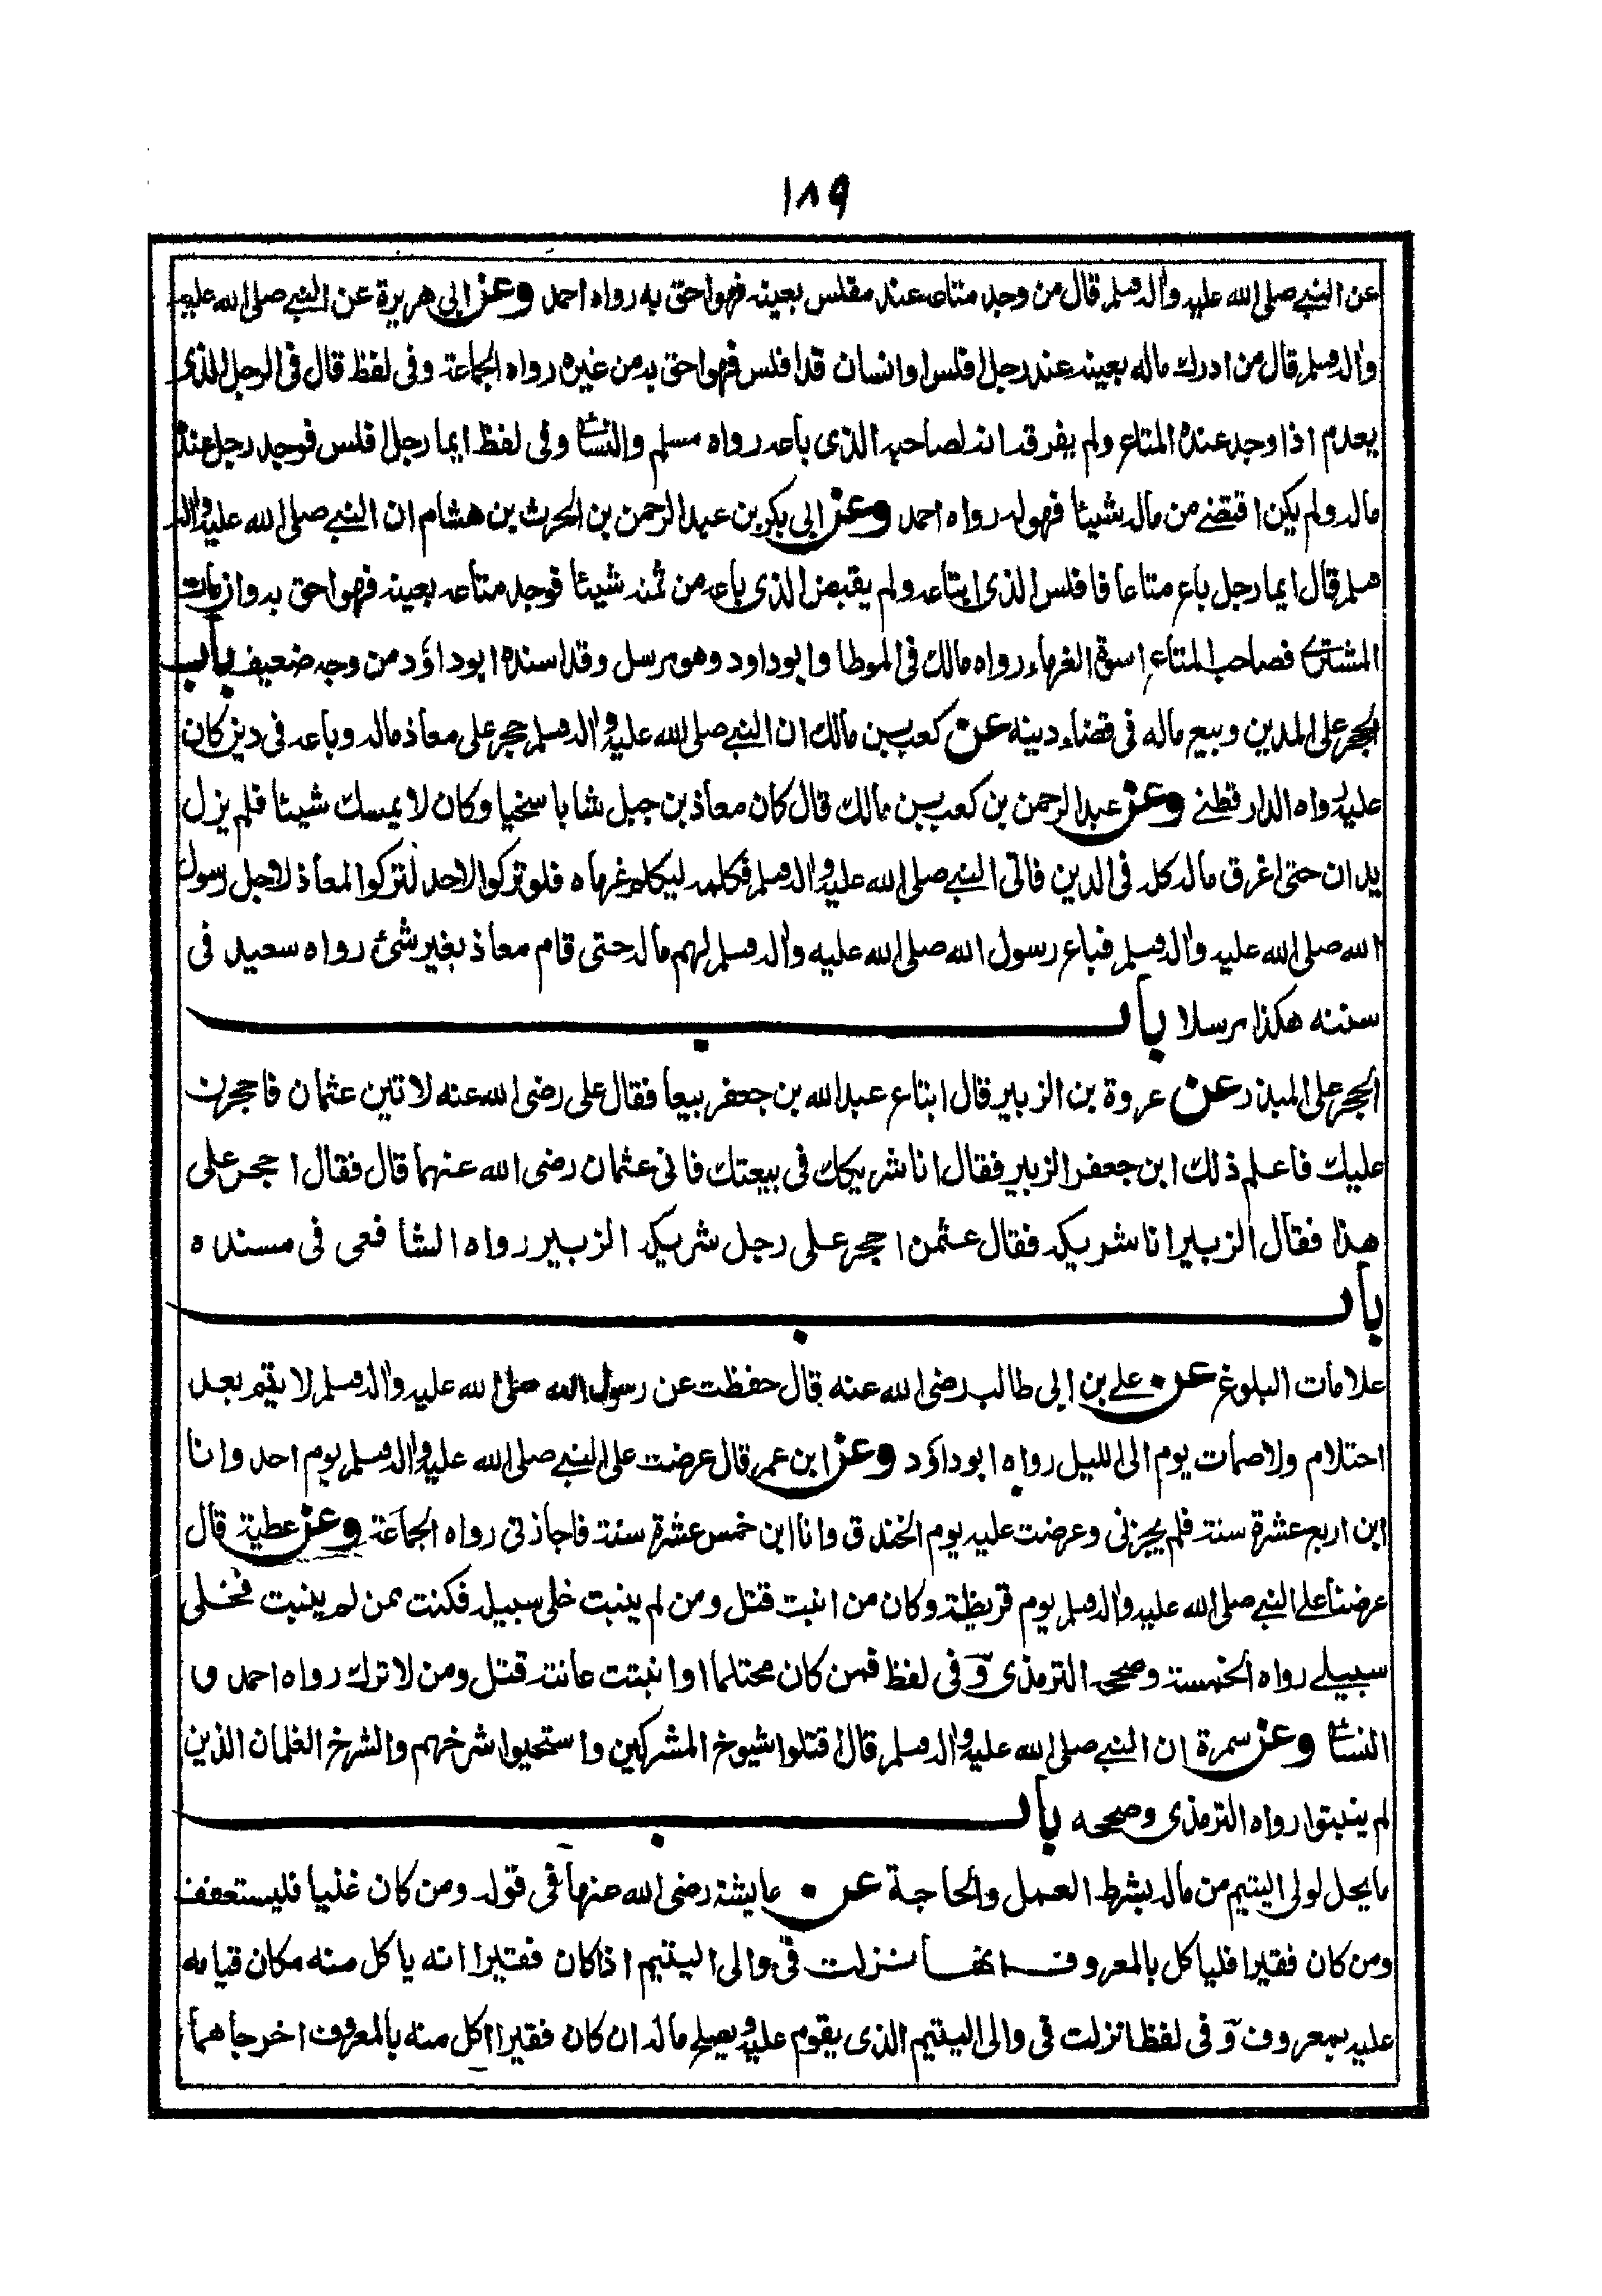 ١٨٩
عن النبي صلى الله عليه واله وسلم قال من وجد متاعه عند مفلس بعينه فهو احق به رواه احمد وعن ابى هريرة عن النبي صلى الله عليه
واله وسلم قال من ادرك ماله بعينه عند رجل افلس او انسان قد افلس فهو احق به من غيره رواه الجماعة وفى لفظ قال فى الرجل الذى
يعدم اذا وجد عنده المتاع ولم يفرقه انه لصاحبه الذى باعه رواه مسلم والنسائ وفى لفظ ايما رجل افلس فوجد رجل عنده
ماله ولم يكن اقتضى من ماله شيئا فهو له رواه احمد وعن ابى بكر بن عبد الرحمن بن الحرث بن هشام ان النبي صلى الله عليه واله
وسلم قال ايما رجل باع متاعا فافلس الذى ابتاعه ولم يقبض الذى باعه من ثمنه شيئا فوجد متاعه بعينه فهو احق به وان مات
المشترى فصاحب المتاع اسوة الغرماء رواه مالك فى الموطا وابو داود وهو مرسل وقد اسنده ابو داؤد من وجه ضعيف باب
الحجر على المدين وبيع ماله فى قضاء دينه عن كعب بن مالك ان النبي صلى الله عليه واله وسلم حجر على معاذ ماله وباعه فى دين كان
عليه رواه الدار قطني وعن عبد الرحمن بن كعب بن مالك قال كان معاذ بن جبل شابا سخيا وكان لا يمسك شيئا فلم يزل
يدان حتى اغرق ماله كله فى الدين فاتى النبي صلى الله عليه واله وسلم فكلمه ليكلم غرماه فلو تركوا لاحد لتركوا لمعاذ لاجل رسول
الله صلى الله عليه واله وسلم فباع رسول الله صلى الله عليه واله وسلم لهم ماله حتى قام معاذ بغير شئ رواه سعيد فى
سننه هكذا مرسلا باب
الحجر على المبذر عن عروة بن الزبير قال ابتاع عبد الله بن جعفر بيعا فقال على رضى الله عنه لاتين عثمان فاحجرن
عليك فاعلم ذلك ابن جعفر الزبير فقال انا شريكك فى بيعتك فاتى عثمان رضى الله عنهما قال فقال احجر على
هذا فقال الزبير انا شريكه فقال عثمن احجر على رجل شريكه الزبير رواه الشافعى فى مسنده
باب
علامات البلوغ عن علي بن ابى طالب رضى الله عنه قال حفظت عن رسول الله صلى الله عليه واله وسلم لا يتم بعد
احتلام ولا صمات يوم الى الليل رواه ابو داؤد وعن ابن عمر قال عرضت على النبي صلى الله عليه واله وسلم يوم احد وانا
ابن اربع عشرة سنة فلم يجزنى وعرضت عليه يوم الخندق وانا ابن خمس عشرة سنة فاجازنى رواه الجماعة وعن عطية قال
عرضنا على النبي صلى الله عليه واله وسلم يوم قريظة وكان من انبت قتل ومن لم ينبت خلى سبيله فكنت ممن لم ينبت فخلى
سبيلي رواه الخمسة وصححه الترمذى وفى لفظ فمن كان محتلما او انبتت عانته قتل ومن لا ترك رواه احمد و
النسائ وعن سمرة ان النبي صلى الله عليه واله وسلم قال اقتلوا شيوخ المشركين واستحيوا شرخهم والشرخ الغلمان الذين
لم ينبتوا رواه الترمذى وصححه باب
ما يحل لولى اليتيم من ماله بشرط العمل والحاجة عن عايشة رضى الله عنها فى قوله ومن كان غنيا فليستعفف
ومن كان فقيرا فلياكل بالمعروف انها نزلت فى والى اليتيم اذا كان فقيرا انه ياكل منه مكان قيامه
عليه بمعروف وفى لفظ انزلت فى والى اليتيم الذى يقوم عليه ويصلح ماله ان كان فقيرا اكل منه بالمعروف اخرجاهما